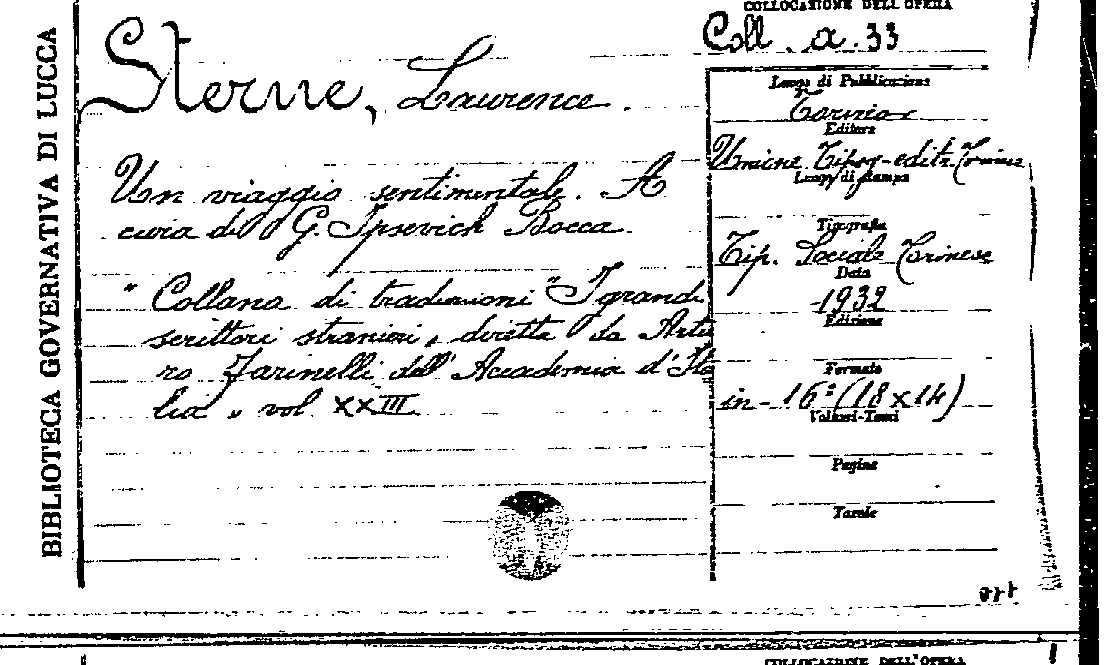 BIBLIOTECA GOVERNATIVA DI LUCCA
COLLOCAZIONE DELL'OPERA
Coll. a. 33
Sterne, Laurence.
Un viaggio sentimentale. A
cura di G. Ipsevich Bocca.
"Collana di traduzioni" I grandi
scrittori stranieri, diretta da Artu
ro Farinelli dell'Accademia d'Ita
lia" vol. XXIII
Luogo di Pubblicazione
Torino
Editore
Unione Tipog-editr. Torinese
Luogo di stampa
Tipografia
Tip. Sociale Torinese
Data
1932
Edizione
Formato
in-16° (18x14)
Volumi-Tomi
Pagine
Tavole
COLLOCAZIONE DELL'OPERA